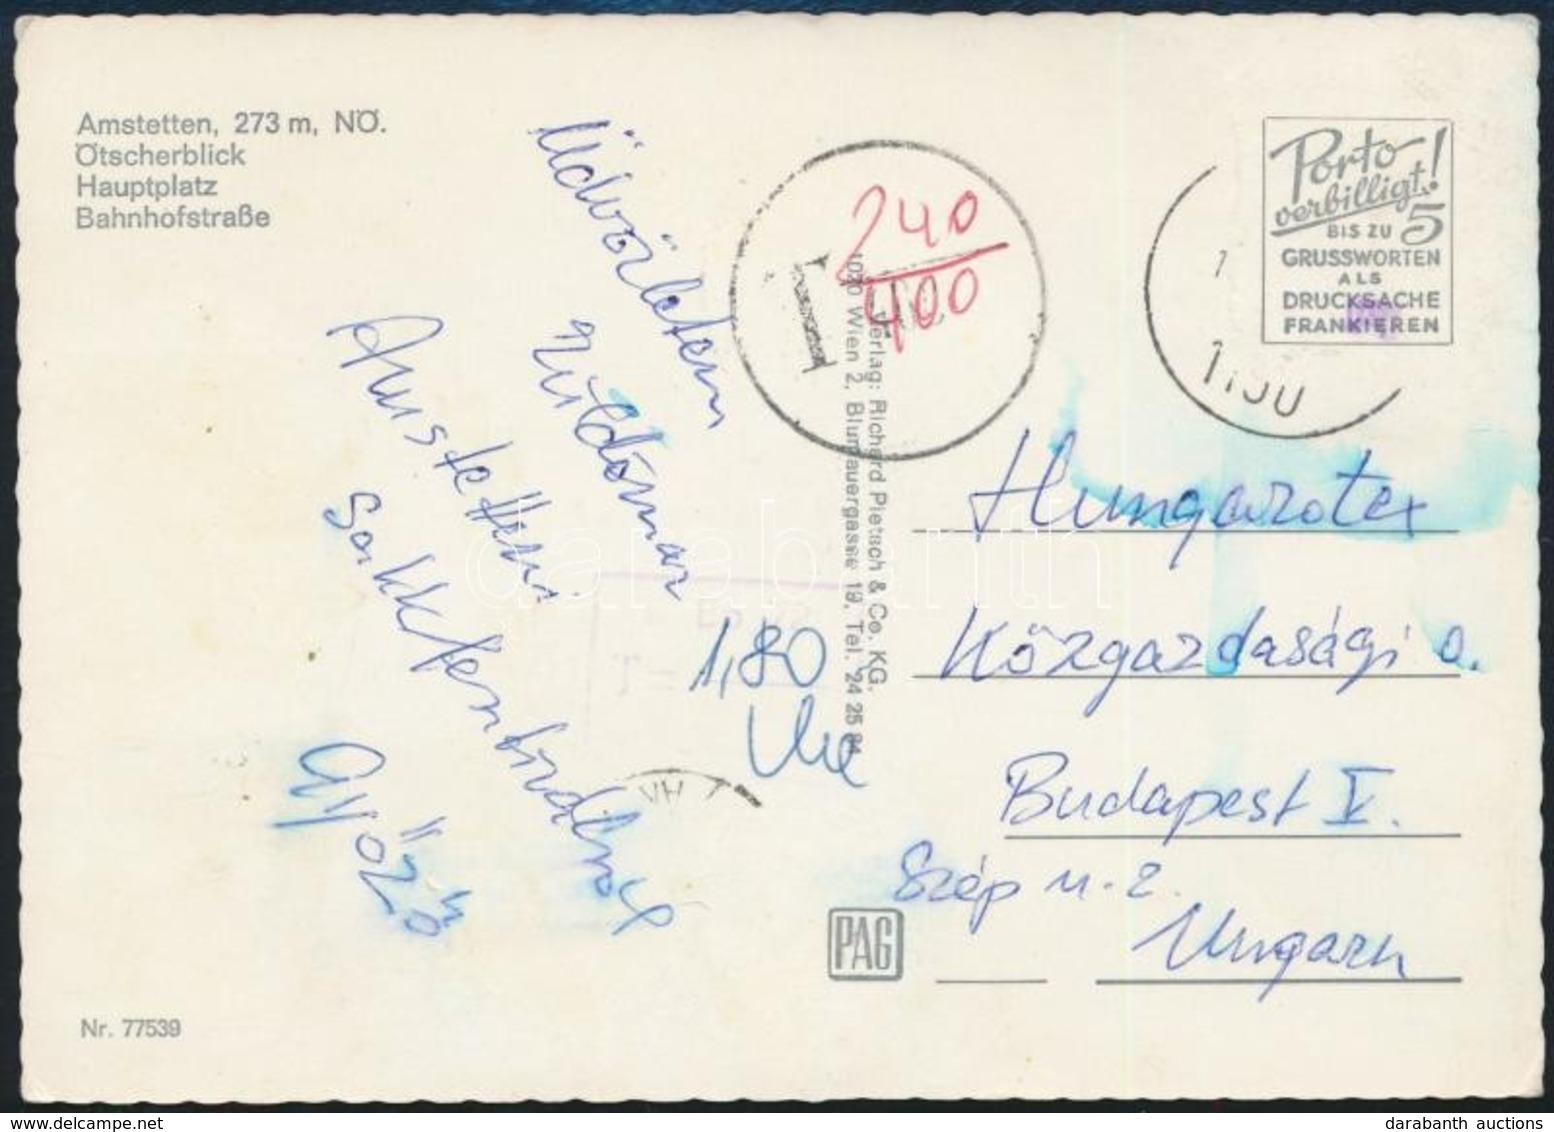 Amstetten, 273 m, NÖ.
Ötscherblick
Hauptplatz
Bahnhofstraße
Üdvözletem
küldöm az
Amstetteni
sakktensivalról
Győző
Nr. 77539
T
240
400
1,80
Verlag: Richard Pietsch & Co. KG.
1020 Wien 2, Blumauergasse 19. Tel. 24 25 84
PAG
Porto
verbilligt!
BIS ZU 5
GRUSSWORTEN
ALS
DRUCKSACHE
FRANKIEREN
Hungarotex
Közgazdasági o.
Budapest V.
Szép u. 2.
Ungarn
T=
darabanth
darabanth auctions